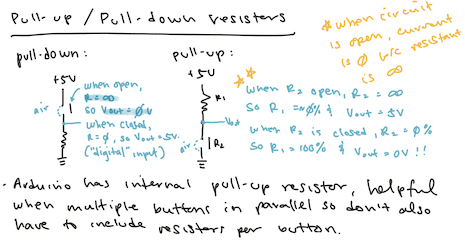 Pull-up / Pull-down resisters
* when circuit
is open, current
is ∅ b/c resistant
is ∞
pull-down:
+5V
air
when open,
R = ∞
so Vout = ∅V
when closed,
R = ∅, so Vout = 5V.
("digital" input)
pull-up:
+5V
R1
Vout
air
R2
**
when R2 open, R2 = ∞
so R1 = ~∅% & Vout = 5V
when R2 is closed, R2 = ∅%
so R1 = 100% & Vout = 0V !!
• Arduino has internal pull-up resistor, helpful
when multiple buttons in parallel so don't also
have to include resisters per button.